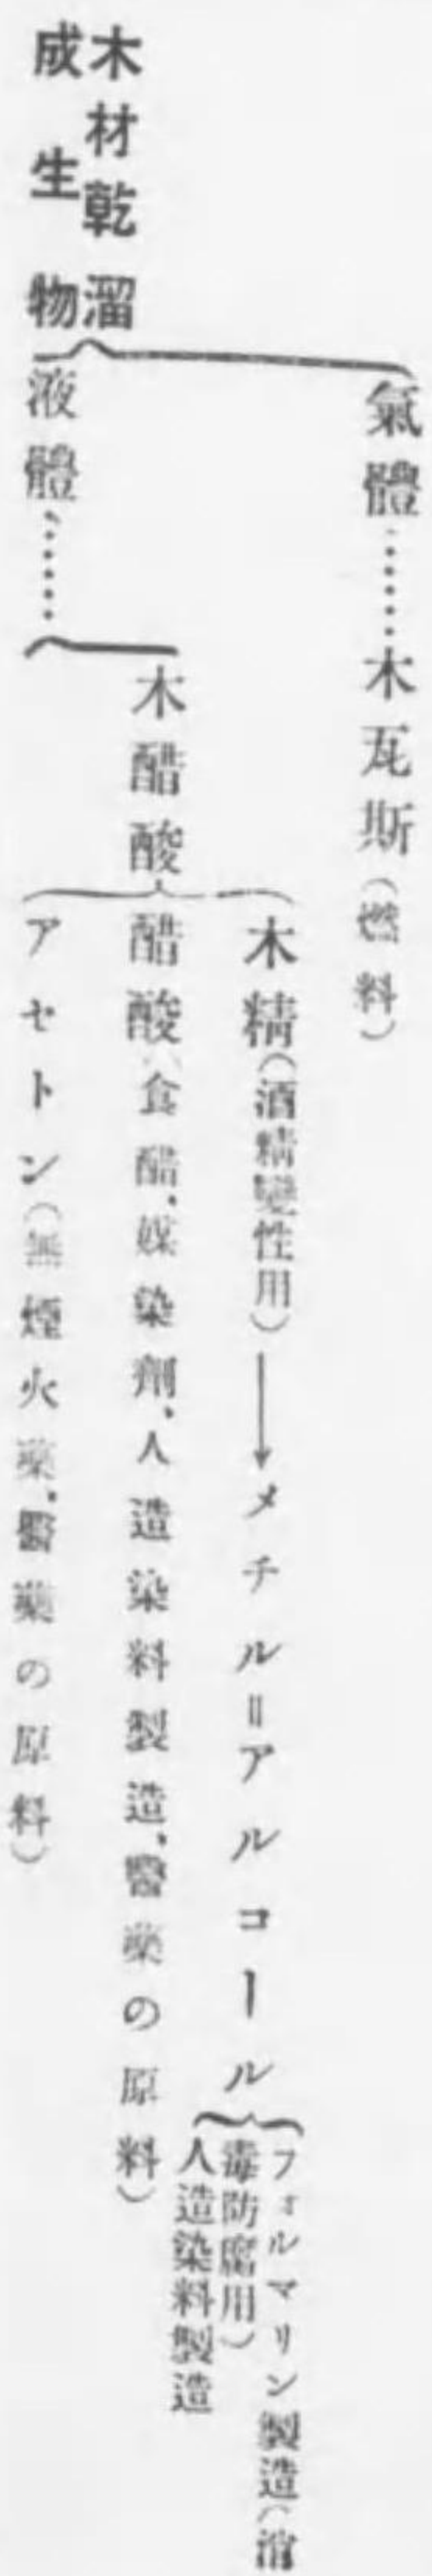 木材乾溜
成生物
氣體……木瓦斯(燃料)
液體……
木醋酸
木精(酒精變性用)→メチル=アルコール
フォルマリン製造(消
毒防腐用)
人造染料製造
醋酸(食醋、媒染劑、人造染料製造、醫藥の原料)
アセトン(無煙火藥、醫藥の原料)